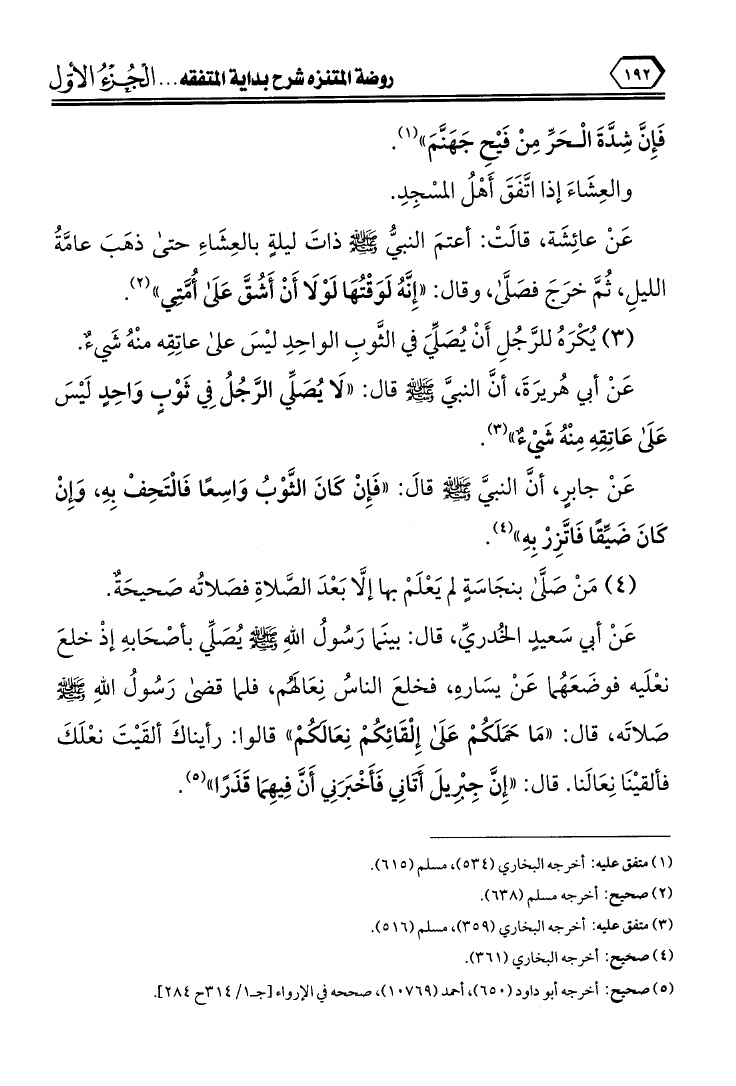 ١٩٢
روضة المتنزه شرح بداية المتفقه ... الجُزءُ الأوّل
فَإِنَّ شِدَّةَ الْحَرِّ مِنْ فَيْحِ جَهَنَّمَ»(١).
والعِشَاءَ إذا اتَّفَقَ أَهْلُ المسْجِدِ.
عَنْ عائِشَة، قالَتْ: أعتمَ النبيُّ ﷺ ذاتَ ليلةٍ بالعِشَاءِ حتىٰ ذهَبَ عامَّةُ
الليلِ، ثُمَّ خرَجَ فصَلَّىٰ، وقال: «إِنَّهُ لَوَقْتُهَا لَوْلَا أَنْ أَشُقَّ عَلَىٰ أُمَّتِي»(٢).
(٣) يُكْرَهُ للرَّجُلِ أَنْ يُصَلِّيَ في الثَّوبِ الواحِدِ ليْسَ علىٰ عاتِقِه منْهُ شَيءٌ.
عَنْ أبي هُريرَةَ، أنَّ النبيَّ ﷺ قال: «لَا يُصَلِّي الرَّجُلُ فِي ثَوْبٍ وَاحِدٍ لَيْسَ
عَلَىٰ عَاتِقِهِ مِنْهُ شَيْءٌ»(٣).
عَنْ جابرٍ، أنَّ النبيَّ ﷺ قالَ: «فَإِنْ كَانَ الثَّوْبُ وَاسِعًا فَالْتَحِفْ بِهِ، وَإِنْ
كَانَ ضَيِّقًا فَاتَّزِرْ بِهِ»(٤).
(٤) مَنْ صَلَّىٰ بنجَاسَةٍ لم يَعْلَمْ بها إلَّا بَعْدَ الصَّلاةِ فصَلاتُه صَحيحَةٌ.
عَنْ أبي سَعيدٍ الخُدريِّ، قال: بينَما رَسُولُ اللهِ ﷺ يُصَلِّي بأصْحَابهِ إذْ خلعَ
نعْلَيه فوضَعَهُما عَنْ يسَارهِ، فخلعَ الناسُ نِعَالَهُم، فلما قضىٰ رَسُولُ اللهِ ﷺ
صَلاتَه، قال: «مَا حَمَلَكُمْ عَلَىٰ إِلْقَائِكُمْ نِعَالَكُمْ» قالوا: رأيناكَ ألقَيْتَ نعْلَكَ
فألقيْنَا نِعَالَنا. قال: «إِنَّ جِبْرِيلَ أَتَانِي فَأَخْبَرَنِي أَنَّ فِيهِمَا قَذَرًا»(٥).
(١) متفق عليه: أخرجه البخاري (٥٣٤)، مسلم (٦١٥).
(٢) صحيح: أخرجه مسلم (٦٣٨).
(٣) متفق عليه: أخرجه البخاري (٣٥٩)، مسلم (٥١٦).
(٤) صحيح: أخرجه البخاري (٣٦١).
(٥) صحيح: أخرجه أبو داود (٦٥٠)، أحمد (١٠٧٦٩)، صححه في الإرواء [جـ١/ ٣١٤ح ٢٨٤].